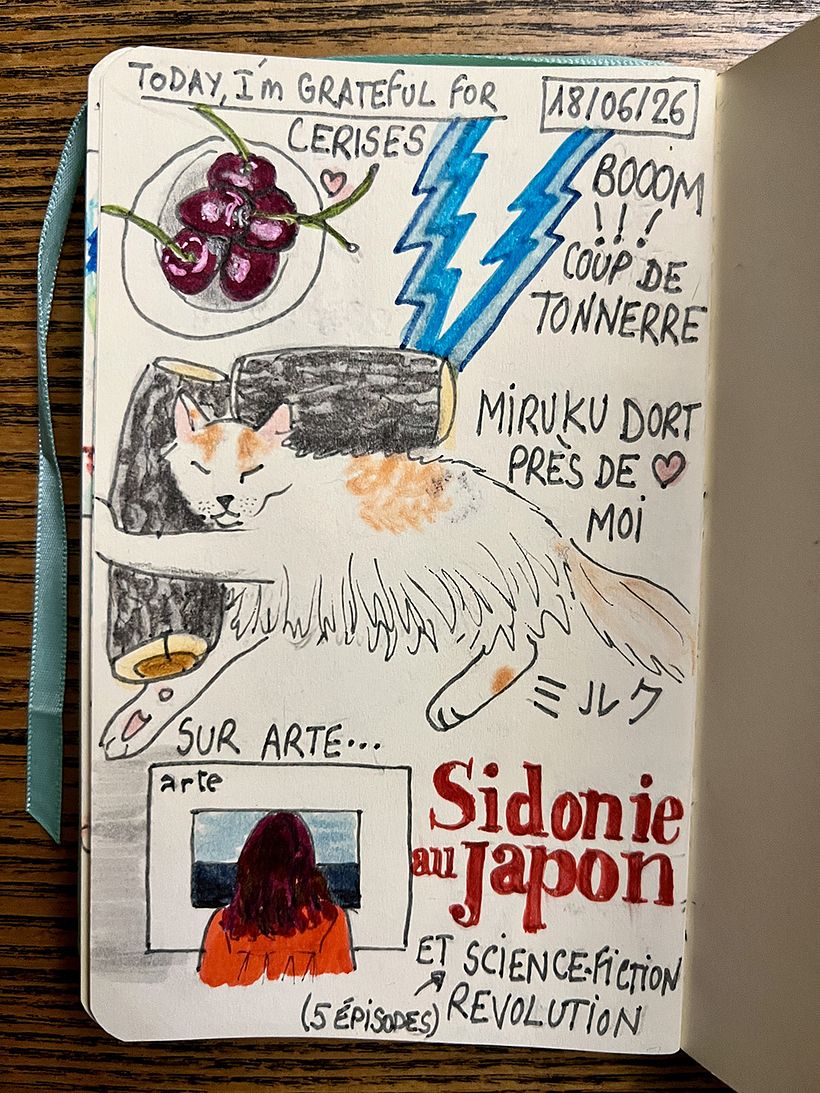 TODAY, I'm GRATEFUL FOR
18/06/26
CERISES
BOOOM
!!!
COUP DE
TONNERRE
MIRUKU DORT
PRÈS DE
MOI
ミルク
SUR ARTE...
arte
Sidonie
au Japon
ET SCIENCE-FICTION
(5 ÉPISODES) REVOLUTION